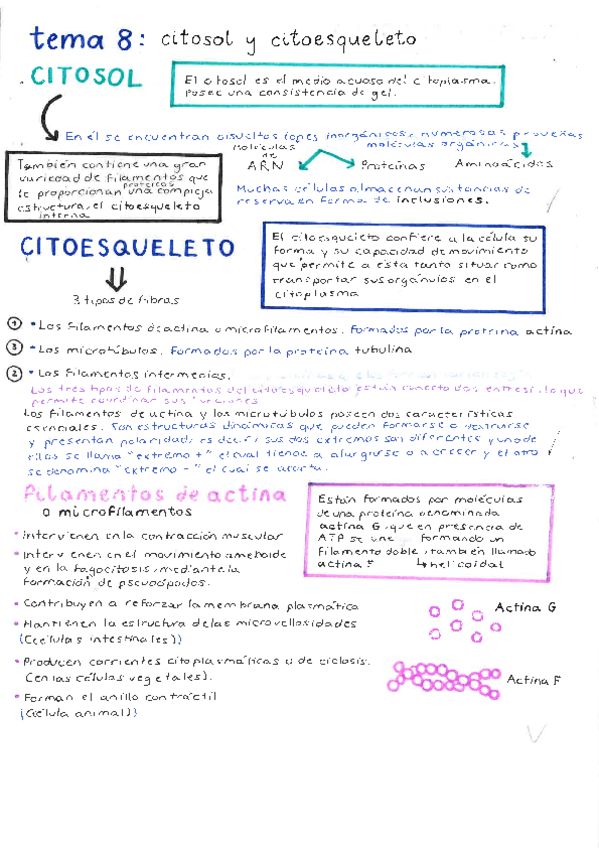 tema 8: citosol y citoesqueleto
CITOSOL
El citosol es el medio acuoso del citoplasma.
Posee una consistencia de gel.
En él se encuentran disueltos iones inorgánicos, numerosas pequeñas
moléculas orgánicas
moléculas
de
ARN
Proteínas
Aminoácidos
También contiene una gran
variedad de filamentos que
proteicos
le proporcionan una compleja
estructura, el citoesqueleto
interna
Muchas células almacenan sustancias de
reserva en forma de inclusiones.
CITOESQUELETO
El citoesqueleto confiere a la célula su
forma y su capacidad de movimiento
que permite a esta tanto situar como
transportar sus orgánulos en el
citoplasma
3 tipos de fibras
1 • Los filamentos de actina o microfilamentos. Formados por la proteína actina
3 • Los microtúbulos. Formados por la proteína tubulina
2 • Los filamentos intermedios.
Los tres tipos de filamentos del citoesqueleto están conectados entre sí, lo que
permite coordinar sus funciones
Los filamentos de actina y los microtúbulos poseen dos características
esenciales. Son estructuras dinámicas que pueden formarse o destruirse
y presentan polaridad, es decir, sus dos extremos son diferentes y uno de
ellos se llama "extremo +" el cual tiende a alargarse o a crecer y el otro
se denomina "extremo -" el cual se acorta.
Filamentos de actina
o microfilamentos
Están formados por moléculas
de una proteína denominada
actina G, que en presencia de
ATP se une formando un
filamento doble, también llamado
actina F ↳ helicoidal
• Intervienen en la contracción muscular
• Intervienen en el movimiento ameboide
y en la fagocitosis, mediante la
formación de pseudópodos.
• Contribuyen a reforzar la membrana plasmática
• Mantienen la estructura de las microvellosidades
(Células intestinales))
• Producen corrientes citoplasmáticas o de ciclosis.
(en las células vegetales).
• Forman el anillo contráctil
(Célula animal))
Actina G
Actina F